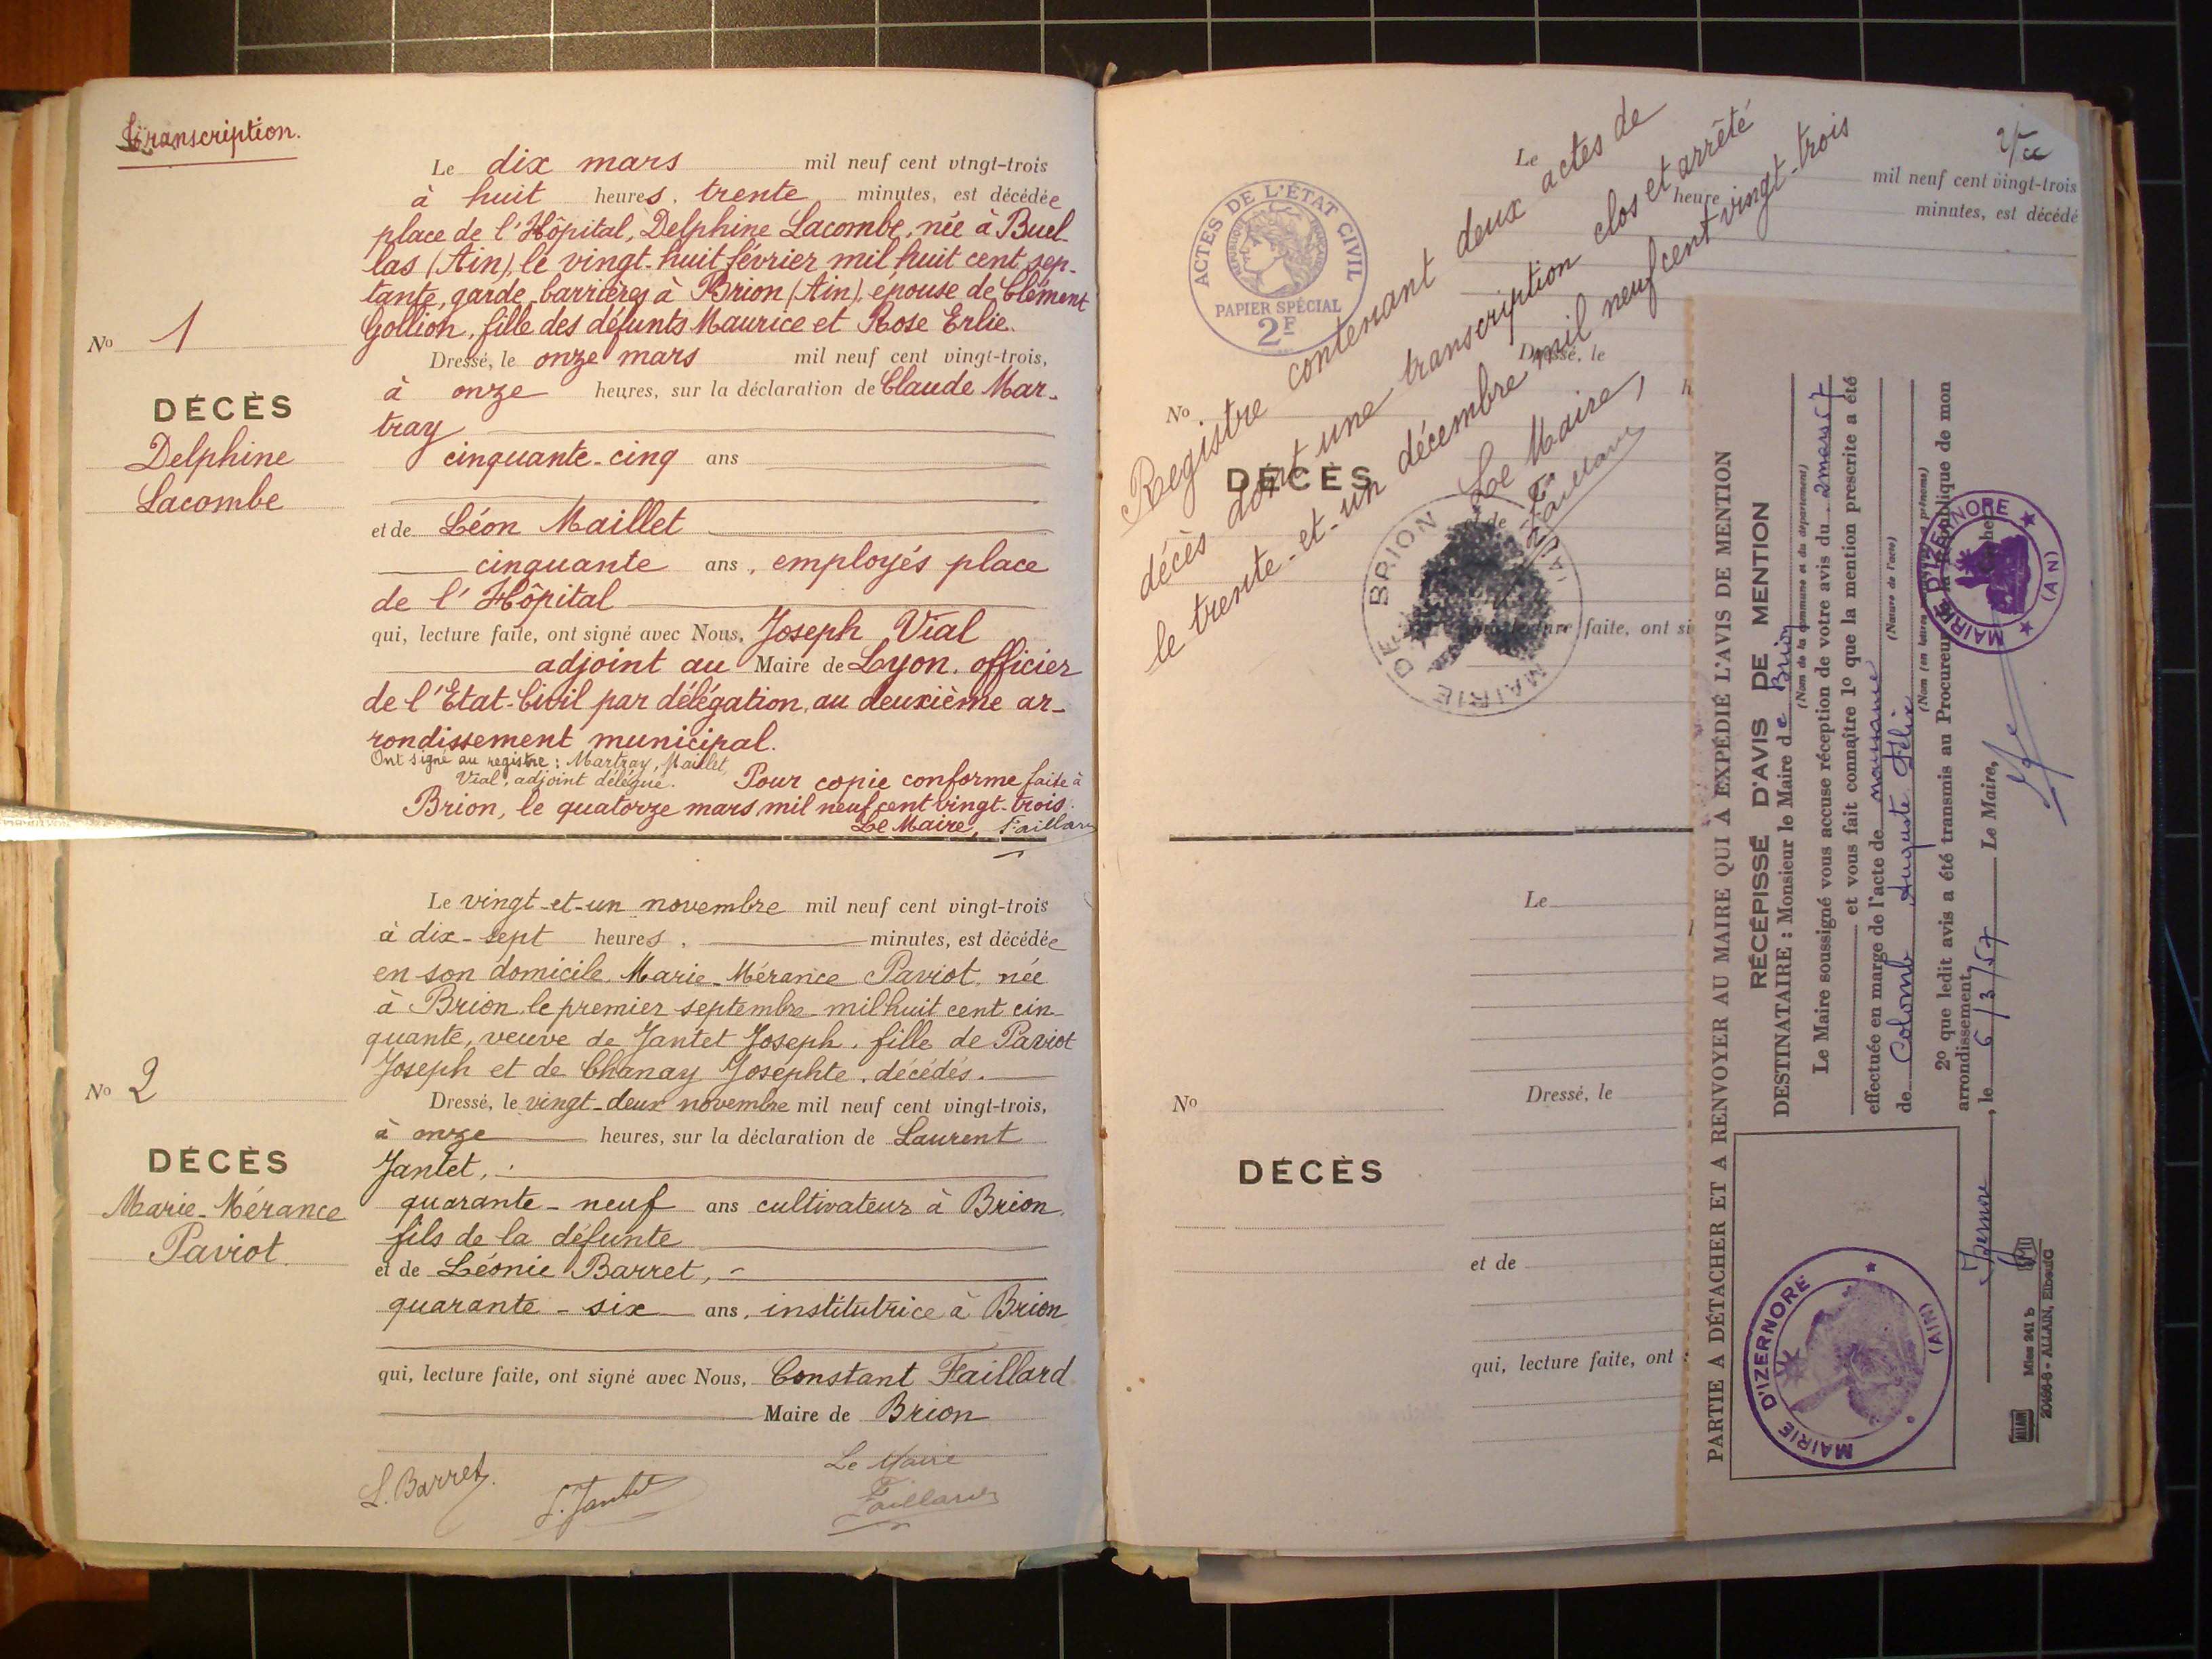 Transcription.
Le dix mars mil neuf cent vingt-trois
à huit heures, trente minutes, est décédée
place de l'Hôpital, Delphine Lacombe, née à Buel-
las (Ain), le vingt-huit février mil huit cent sep-
tante, garde-barrières à Brion (Ain), épouse de Clément
Gollion, fille des défunts Maurice et Rose Erlie.
No 1
Dressé, le onze mars mil neuf cent vingt-trois,
à onze heures, sur la déclaration de Claude Mar-
tray
DÉCÈS
Delphine
Lacombe
cinquante-cinq ans
et de Léon Maillet
cinquante ans, employés place
de l'Hôpital
qui, lecture faite, ont signé avec Nous, Joseph Vial
adjoint au Maire de Lyon, officier
de l'Etat-Civil par délégation, au deuxième ar-
rondissement municipal.
Ont signé au registre : Martray, Maillet,
Vial, adjoint délégué. Pour copie conforme faite à
Brion, le quatorze mars mil neuf cent vingt-trois.
Le Maire, Faillard
Le vingt-et-un novembre mil neuf cent vingt-trois
à dix-sept heures, minutes, est décédée
en son domicile Marie-Mérance Paviot, née
à Brion le premier septembre mil huit cent cin-
quante, veuve de Jantet Joseph, fille de Paviot
Joseph et de Chanay Josephte, décédés.
No 2
Dressé, le vingt-deux novembre mil neuf cent vingt-trois,
à onze heures, sur la déclaration de Laurent
Jantet,
DÉCÈS
Marie-Mérance
Paviot.
quarante-neuf ans cultivateur à Brion,
fils de la défunte
et de Léonie Barret,
quarante-six ans, institutrice à Brion
qui, lecture faite, ont signé avec Nous, Constant Faillard
Maire de Brion
L. Barret.
L. Jantet
Le Maire
Faillard
Le mil neuf cent vingt-trois
heure minutes, est décédé
ACTES DE L'ÉTAT CIVIL
RÉPUBLIQUE FRANÇAISE
PAPIER SPÉCIAL
2F
Registre contenant deux actes de
décès dont une transcription clos et arrêté
le trente-et-un décembre mil neuf cent vingt-trois
Le Maire,
Faillard
No
Dressé, le
h
DÉCÈS
et de
MAIRIE DE BRION (AIN)
lecture faite, ont si
Le
No
Dressé, le
DÉCÈS
et de
qui, lecture faite, ont
PARTIE A DÉTACHER ET A RENVOYER AU MAIRE QUI A EXPÉDIÉ L'AVIS DE MENTION
RÉCÉPISSÉ D'AVIS DE MENTION
DESTINATAIRE : Monsieur le Maire de Brion
(Nom de la commune et du département)
Le Maire soussigné vous accuse réception de votre avis du 2 mars 57
et vous fait connaître 1º que la mention prescrite a été
effectuée en marge de l'acte de naissance
(Nature de l'acte)
de Colomb Auguste Félix
(Nom (en lettres prénoms)
2º que ledit avis a été transmis au Procureur la République de mon
arrondissement.
Izernore, le 6/3/57 Le Maire,
MAIRIE D'IZERNORE (AIN)
MAIRIE D'IZERNORE (AIN)
ALLAIN
Mles 241 b
20496-6 - ALLAIN, Elbeuf